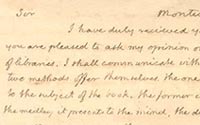 Sir Montic
I have duly recieved y
you are pleased to ask my opinion o
of libraries. I shall communicate wit
two methods offer themselves the one
to the subject of the book. the former
the medley, it presents to the mind, the d